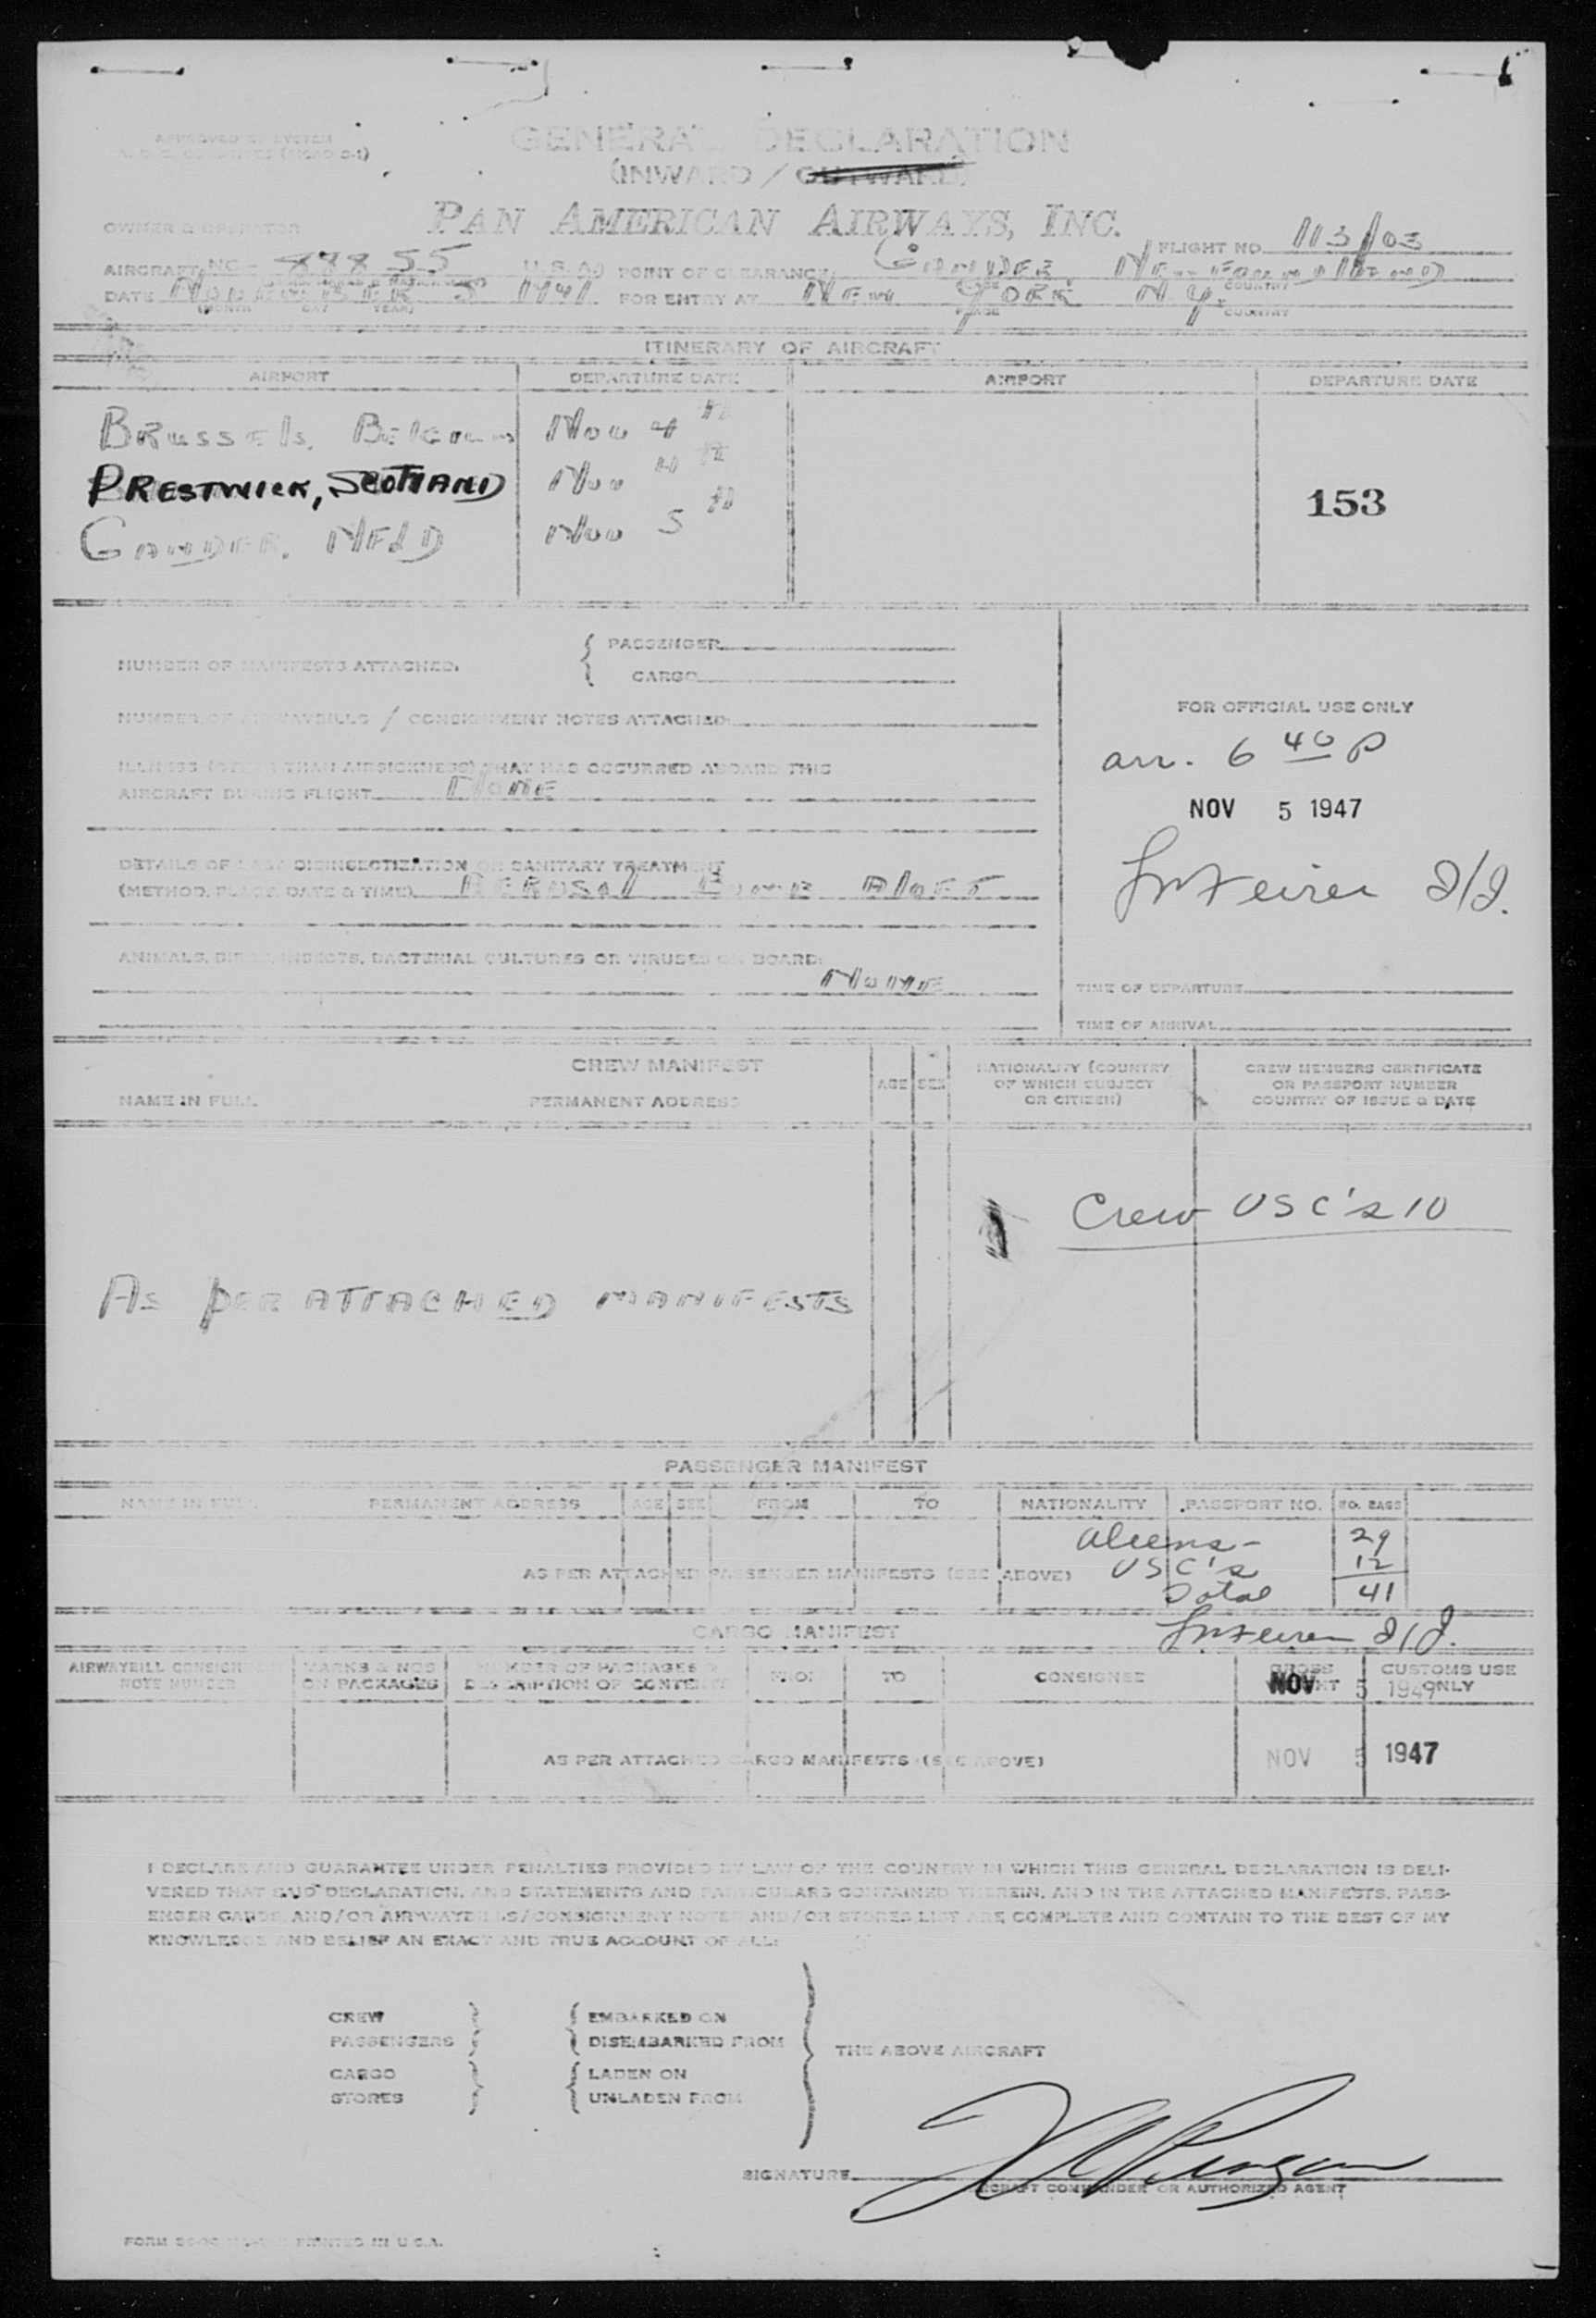 GENERAL DECLARATION
(INWARD / OUTWARD)
OWNER & OPERATOR PAN AMERICAN AIRWAYS, INC.
FLIGHT NO. 113/03
AIRCRAFT NC 88855 U.S.A. POINT OF CLEARANCE GANDER NEWFOUNDLAND
DATE NOVEMBER 5 1947 FOR ENTRY AT NEW YORK N.Y.
(MONTH DAY YEAR) PLACE COUNTRY
ITINERARY OF AIRCRAFT
AIRPORT DEPARTURE DATE AIRPORT DEPARTURE DATE
BRUSSELS, BELGIUM NOV 4TH
PRESTWICK, SCOTLAND NOV 4TH
153
GANDER, NFLD NOV 5TH
NUMBER OF MANIFESTS ATTACHED.
PASSENGER
CARGO
NUMBER OF AIRWAYBILLS / CONSIGNMENT NOTES ATTACHED
ILLNESS (OTHER THAN AIRSICKNESS) THAT HAS OCCURRED ABOARD THIS
AIRCRAFT DURING FLIGHT NONE
DETAILS OF LAST DISINSECTIZATION OR SANITARY TREATMENT
(METHOD, PLACE, DATE & TIME) AEROSOL BOMB ALOFT
ANIMALS, BIRDS, INSECTS, BACTERIAL CULTURES OR VIRUSES ON BOARD:
NONE
FOR OFFICIAL USE ONLY
arr. 6 40 P
NOV 5 1947
TIME OF DEPARTURE
TIME OF ARRIVAL
CREW MANIFEST
NAME IN FULL PERMANENT ADDRESS AGE SEX NATIONALITY (COUNTRY OF WHICH SUBJECT OR CITIZEN) CREW MEMBERS CERTIFICATE OR PASSPORT NUMBER COUNTRY OF ISSUE & DATE
Crew USC's 10
AS PER ATTACHED MANIFESTS
PASSENGER MANIFEST
NAME IN FULL PERMANENT ADDRESS AGE SEX FROM TO NATIONALITY PASSPORT NO. NO. BAGS
Aliens - 29
AS PER ATTACHED PASSENGER MANIFESTS (SEE ABOVE) USC's 12
Total 41
CARGO MANIFEST
AIRWAYBILL CONSIGNMENT NOTE NUMBER MARKS & NOS ON PACKAGES NUMBER OF PACKAGES & DESCRIPTION OF CONTENTS FROM TO CONSIGNEE GROSS WEIGHT CUSTOMS USE ONLY
NOV 5 1947
AS PER ATTACHED CARGO MANIFESTS (SEE ABOVE) NOV 5 1947
I DECLARE AND GUARANTEE UNDER PENALTIES PROVIDED BY LAW OF THE COUNTRY IN WHICH THIS GENERAL DECLARATION IS DELI-
VERED THAT SAID DECLARATION, AND STATEMENTS AND PARTICULARS CONTAINED THEREIN, AND IN THE ATTACHED MANIFESTS, PASS-
ENGER CARDS, AND/OR AIRWAYBILLS/CONSIGNMENT NOTES AND/OR STORES LIST ARE COMPLETE AND CONTAIN TO THE BEST OF MY
KNOWLEDGE AND BELIEF AN EXACT AND TRUE ACCOUNT OF ALL:
CREW EMBARKED ON
PASSENGERS DISEMBARKED FROM
THE ABOVE AIRCRAFT
CARGO LADEN ON
STORES UNLADEN FROM
SIGNATURE
AIRCRAFT COMMANDER OR AUTHORIZED AGENT
PRINTED IN U.S.A.